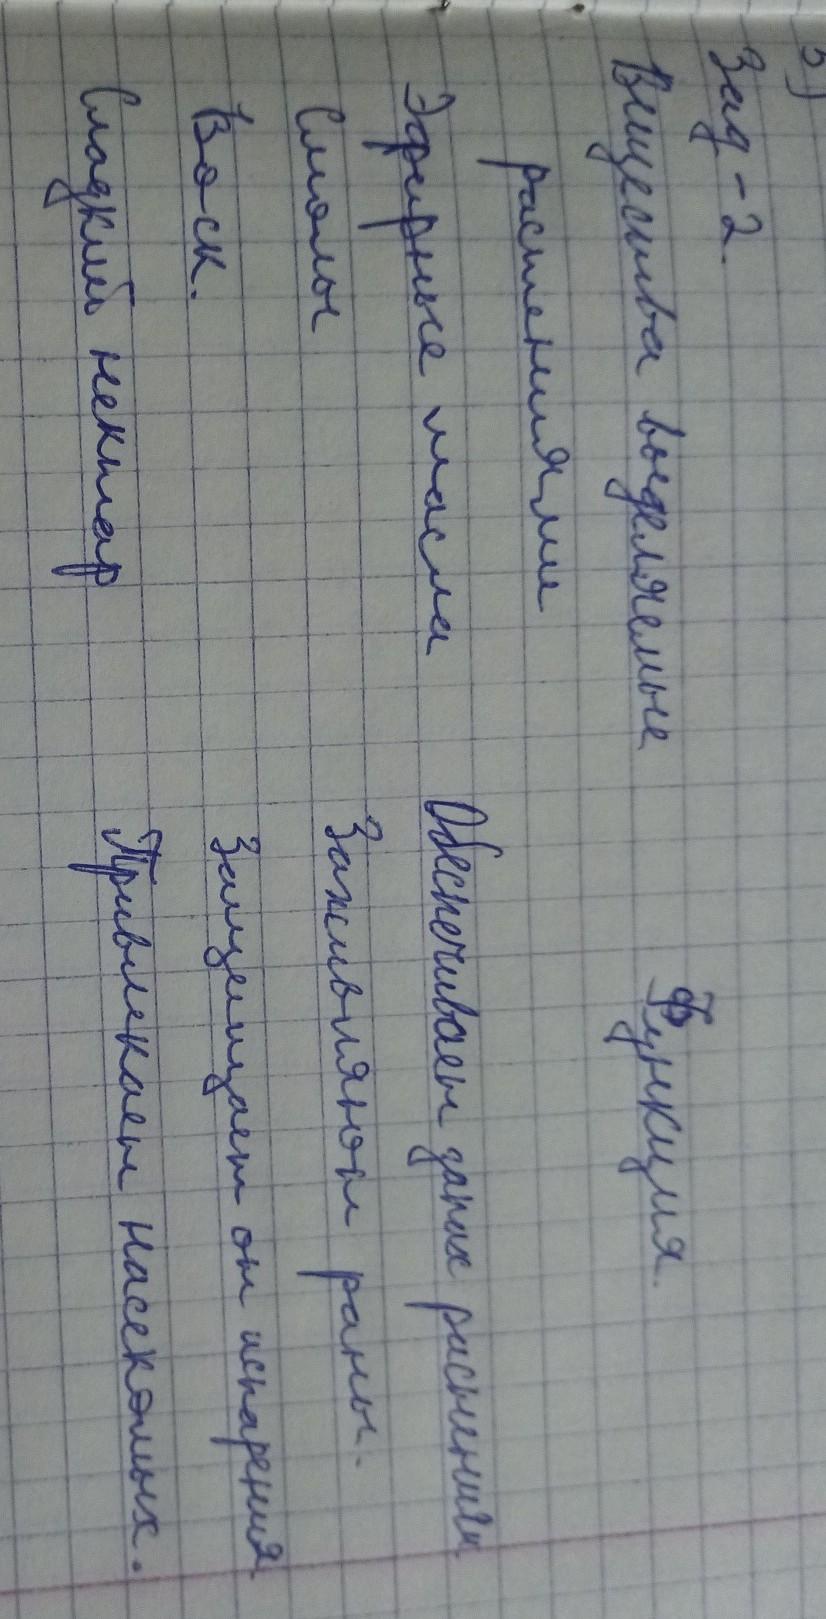 5)
Зад - 2.
Вещества выделяемые Функция.
растениями
Эфирные масла Обеспечивает запах растениям
Смолы Заживляют раны.
Воск. Защещает от испарения.
Сладкий нектар Привлекает насекомых.